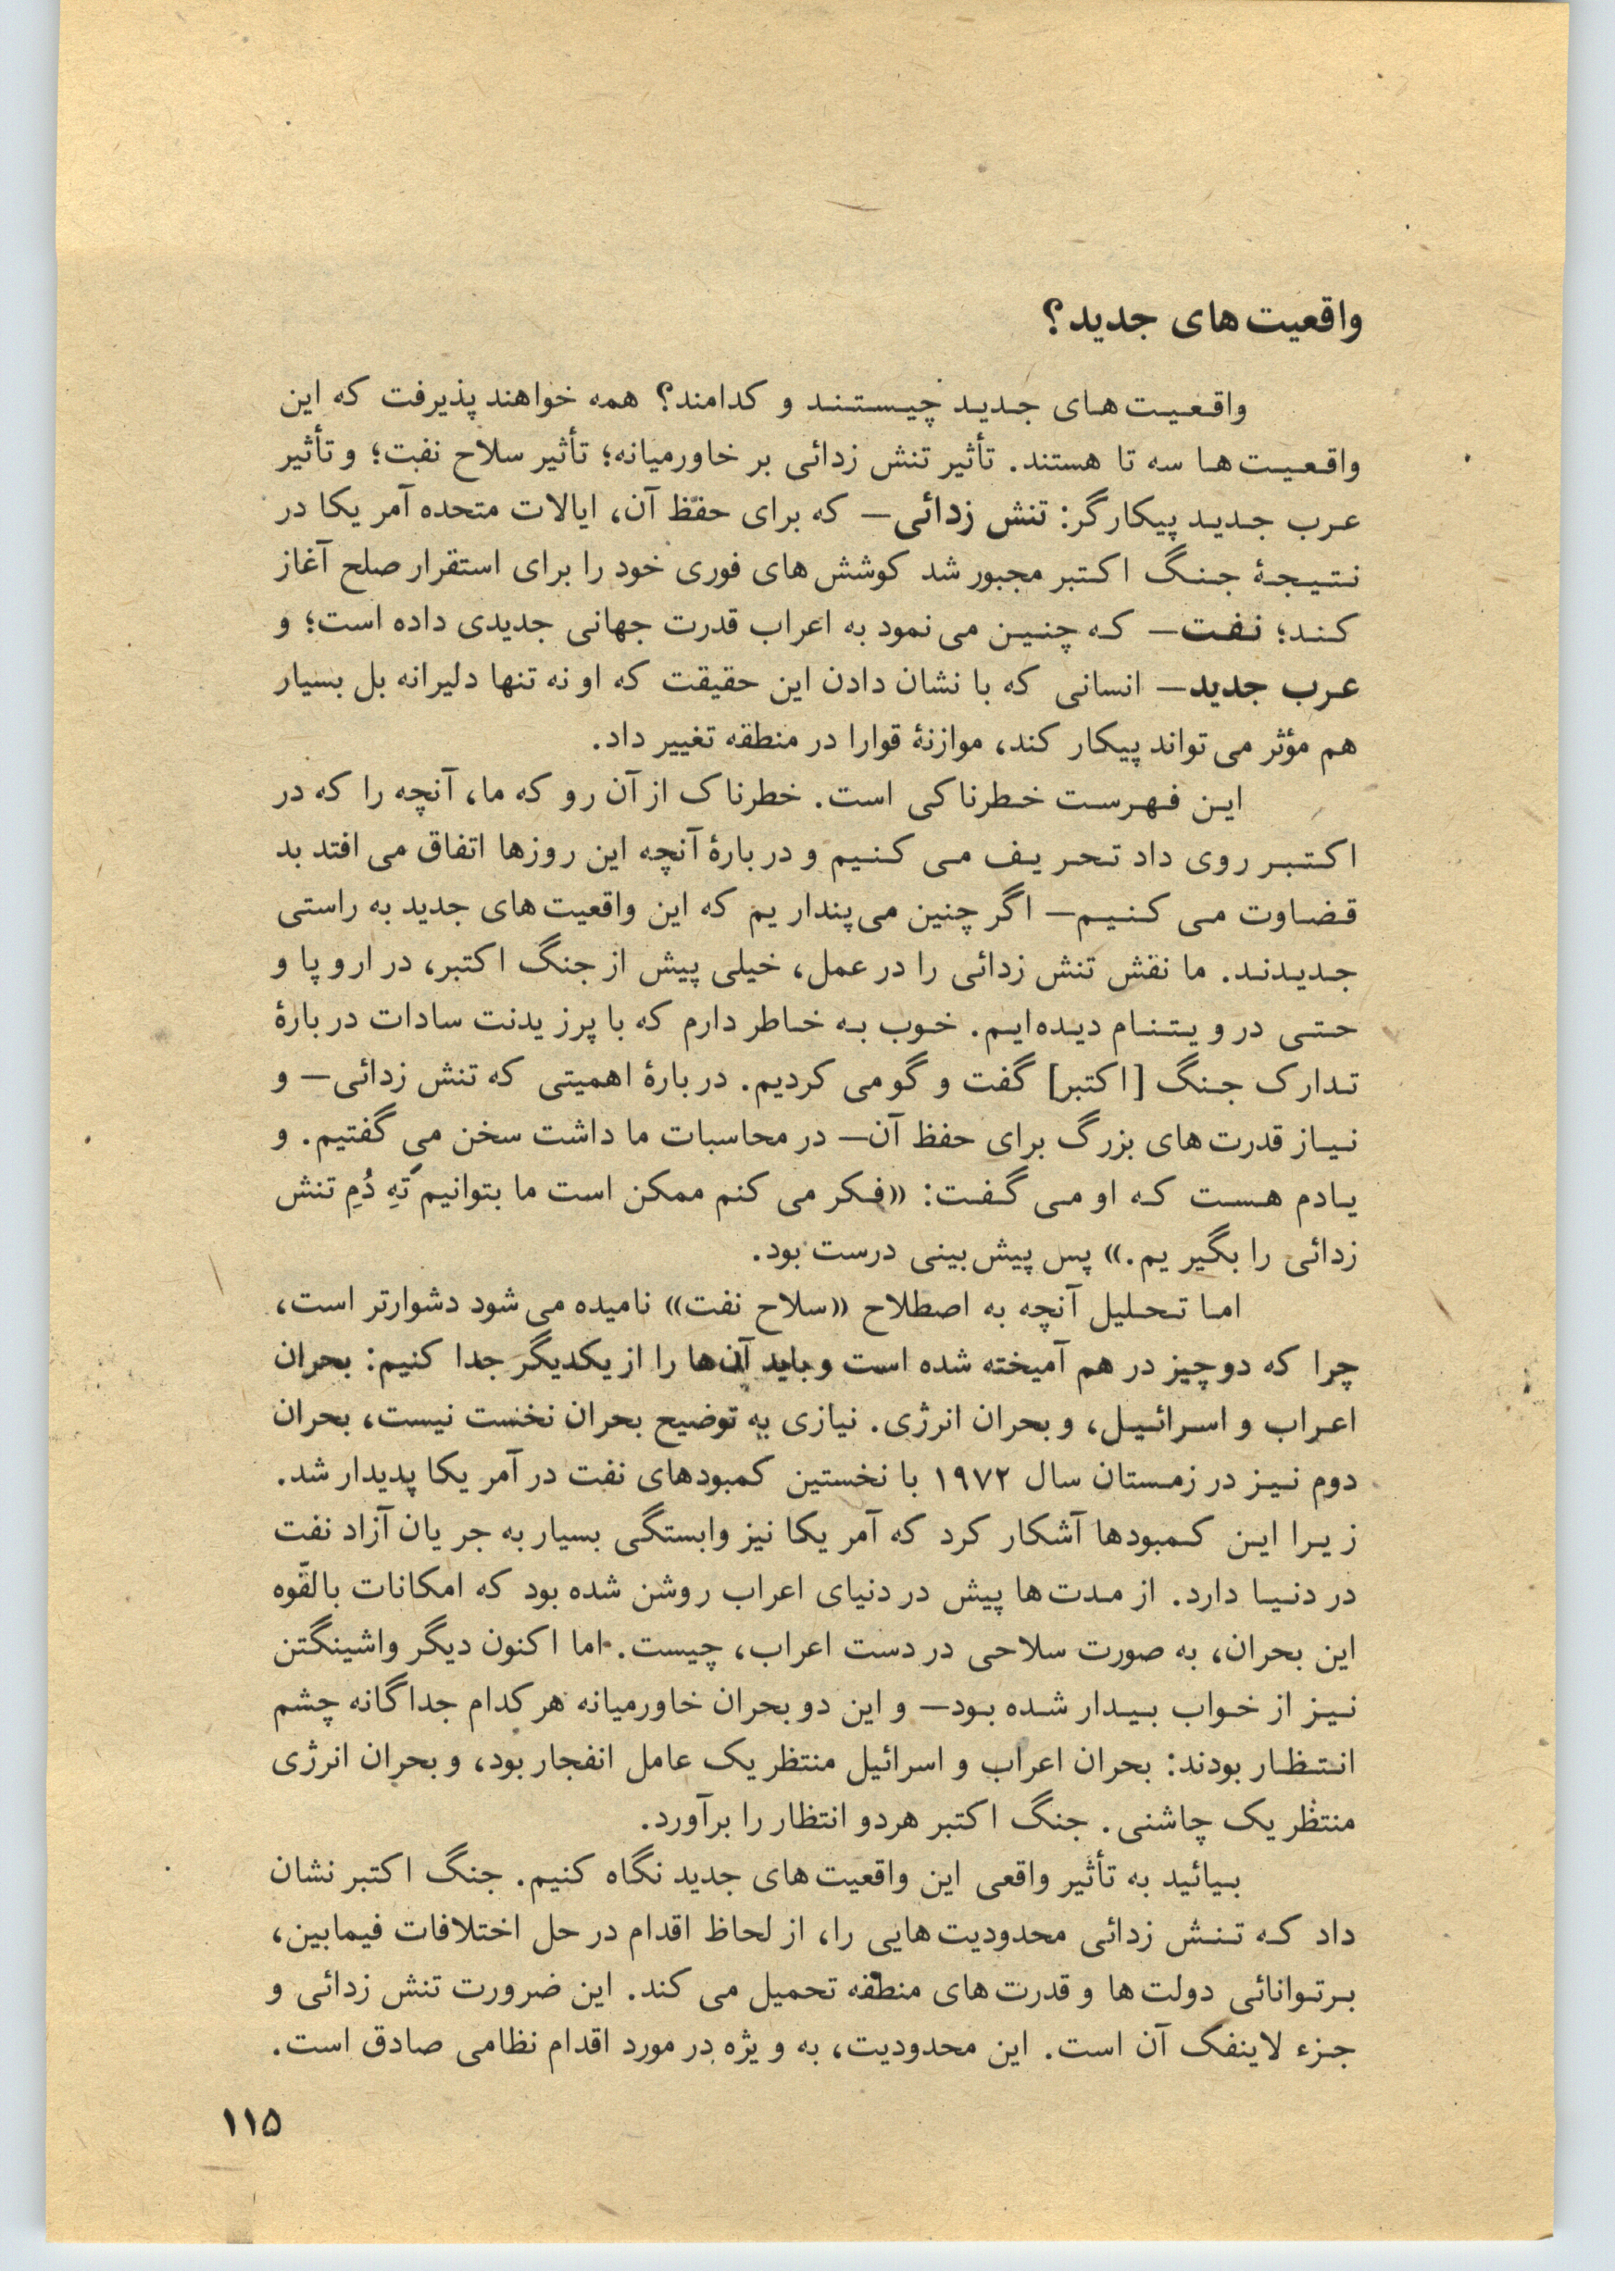 واقعیت‌های جدید؟
واقعیت‌های جدید چیستند و کدامند؟ همه خواهند پذیرفت که این
واقعیت‌ها سه تا هستند. تأثیر تنش زدائی بر خاورمیانه؛ تأثیر سلاح نفت؛ و تأثیر
عرب جدید پیکارگر: تنش زدائی— که برای حفظ آن، ایالات متحده آمریکا در
نتیجهٔ جنگ اکتبر مجبور شد کوشش های فوری خود را برای استقرار صلح آغاز
کند؛ نفت— که چنین می نمود به اعراب قدرت جهانی جدیدی داده است؛ و
عرب جدید— انسانی که با نشان دادن این حقیقت که او نه تنها دلیرانه بل بسیار
هم مؤثر می تواند پیکار کند، موازنهٔ قوا را در منطقه تغییر داد.
این فهرست خطرناکی است. خطرناک از آن رو که ما، آنچه را که در
اکتبر روی داد تحریف می کنیم و دربارهٔ آنچه این روزها اتفاق می افتد بد
قضاوت می کنیم— اگر چنین می پنداریم که این واقعیت‌های جدید به راستی
جدیدند. ما نقش تنش زدائی را در عمل، خیلی پیش از جنگ اکتبر، در اروپا و
حتی در ویتنام دیده‌ایم. خوب به خاطر دارم که با پرزیدنت سادات دربارهٔ
تدارک جنگ [اکتبر] گفت و گو می کردیم. دربارهٔ اهمیتی که تنش زدائی— و
نیاز قدرت‌های بزرگ برای حفظ آن— در محاسبات ما داشت سخن می گفتیم. و
یادم هست که او می گفت: «فکر می کنم ممکن است ما بتوانیم تَهِ دُمِ تنش
زدائی را بگیریم.» پس پیش بینی درست بود.
اما تحلیل آنچه به اصطلاح «سلاح نفت» نامیده می شود دشوارتر است،
چرا که دو چیز در هم آمیخته شده است و باید آن‌ها را از یکدیگر جدا کنیم: بحران
اعراب و اسرائیل، و بحران انرژی. نیازی به توضیح بحران نخست نیست، بحران
دوم نیز در زمستان سال ۱۹۷۲ با نخستین کمبودهای نفت در آمریکا پدیدار شد.
زیرا این کمبودها آشکار کرد که آمریکا نیز وابستگی بسیار به جریان آزاد نفت
در دنیا دارد. از مدت‌ها پیش در دنیای اعراب روشن شده بود که امکانات بالقوّه
این بحران، به صورت سلاحی در دست اعراب، چیست. اما اکنون دیگر واشینگتن
نیز از خواب بیدار شده بود— و این دو بحران خاورمیانه هر کدام جداگانه چشم
انتظار بودند: بحران اعراب و اسرائیل منتظر یک عامل انفجار بود، و بحران انرژی
منتظر یک چاشنی. جنگ اکتبر هر دو انتظار را برآورد.
بیائید به تأثیر واقعی این واقعیت‌های جدید نگاه کنیم. جنگ اکتبر نشان
داد که تنش زدائی محدودیت‌هایی را، از لحاظ اقدام در حل اختلافات فیمابین،
بر توانائی دولت‌ها و قدرت‌های منطقه تحمیل می کند. این ضرورت تنش زدائی و
جزء لاینفک آن است. این محدودیت، به ویژه در مورد اقدام نظامی صادق است.
۱۱۵